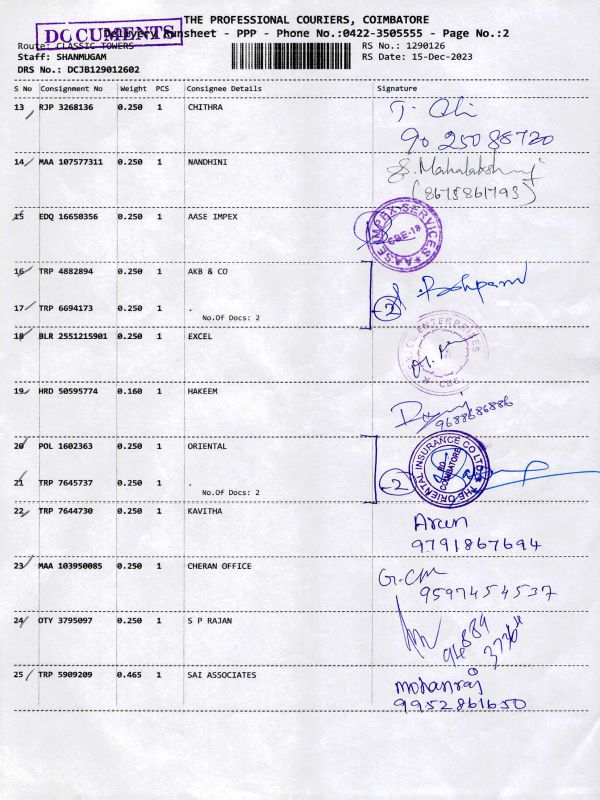 THE PROFESSIONAL COURIERS, COIMBATORE
DOCUMENTS
Delivery Runsheet - PPP - Phone No.:0422-3505555 - Page No.:2
Route: CLASSIC TOWERS
RS No.: 1290126
Staff: SHANMUGAM
RS Date: 15-Dec-2023
DRS No.: DCJB129012602
S No Consignment No Weight PCS Consignee Details Signature
13 RJP 3268136 0.250 1 CHITHRA
90 250 88720
14 MAA 107577311 0.250 1 NANDHINI
S. Mahalakshmi
(8675861793)
15 EDQ 16650356 0.250 1 AASE IMPEX
AASE IMPEX SERVICES
CBE-18
16 TRP 4882894 0.250 1 AKB & CO
17 TRP 6694173 0.250 1 .
No.Of Docs: 2
2
18 BLR 2551215901 0.250 1 EXCEL
EXCEL ENTERPRISES
CBE
19 HRD 50595774 0.160 1 HAKEEM
9688686886
20 POL 1602363 0.250 1 ORIENTAL
21 TRP 7645737 0.250 1
No.Of Docs: 2
2
THE ORIENTAL INSURANCE CO LTD
COIMBATORE
22 TRP 7644730 0.250 1 KAVITHA
Arun
9791867694
23 MAA 103950085 0.250 1 CHERAN OFFICE
9597454537
24 OTY 3795097 0.250 1 S P RAJAN
25 TRP 5909209 0.465 1 SAI ASSOCIATES
mohanraj
9952861650